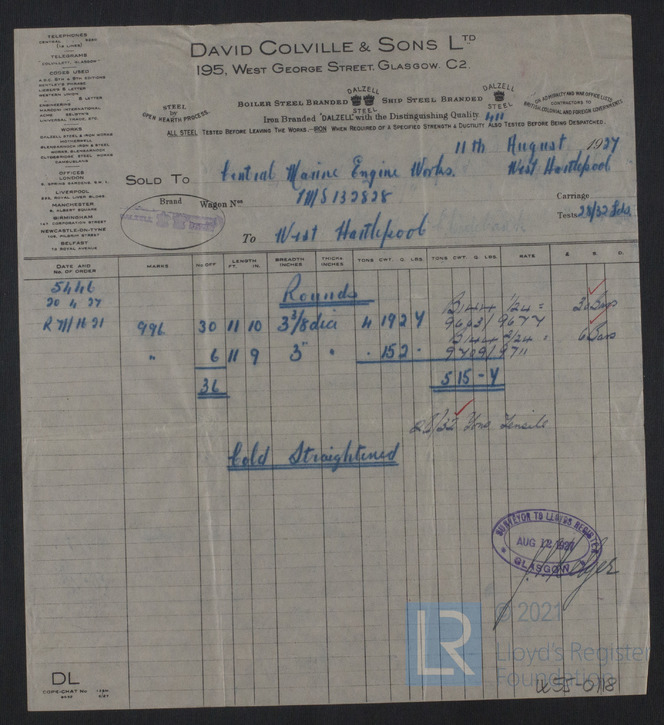 TELEPHONES
CENTRAL
(10 LINES)
TELEGRAMS
COLVILLES, GLASGOW
CODES USED
WESTERN UNION
5 LETTER
ENGINEERING
MARCONI INTERNATIONAL
ACME
UNIVERSAL TRADE, ETC.
WORKS
DALZELL STEEL & IRON WORKS
MOTHERWELL
GLENGARNOCK IRON & STEEL
WORKS, GLENGARNOCK
CLYDEBRIDGE STEEL WORKS
CAMBUSLANG
OFFICES
LONDON
LIVERPOOL
MANCHESTER
BIRMINGHAM
NEWCASTLE-ON-TYNE
BELFAST
DAVID COLVILLE & SONS LTD
195, WEST GEORGE STREET, GLASGOW. C2.
STEEL
BY
OPEN HEARTH PROCESS.
BOILER STEEL BRANDED DALZELL STEEL SHIP STEEL BRANDED DALZELL STEEL
ON ADMIRALTY AND WAR OFFICE LISTS
CONTRACTORS TO
BRITISH, COLONIAL AND FOREIGN GOVERNMENTS.
Iron Branded "DALZELL" with the Distinguishing Quality.
ALL STEEL TESTED BEFORE LEAVING THE WORKS.—IRON WHEN REQUIRED OF A SPECIFIED STRENGTH & DUCTILITY ALSO TESTED BEFORE BEING DESPATCHED.
11th August 1927
SOLD TO Central Marine Engine Works. West Hartlepool
Brand Wagon Nos LMS 132828 Carriage
Tests 28/32
To West Hartlepool
DATE AND No. OF ORDER MARKS No. OFF LENGTH FT. IN. BREADTH INCHES THICK INCHES TONS CWT. Q. LBS. TONS CWT. Q. LBS. RATE £ S. D.
5446
20 4 27
Rounds
996 30 11 10 3 3/8 dia 4 19 2 7 9663/9677
" 6 11 9 3" " . 15 2 . 9709/9711 6 Bars
36 5 15 - 7
28/32 Tons Tensile
Cold Straightened
SURVEYOR TO LLOYDS REGISTER
AUG 12 1927
GLASGOW
DL
COPE-CHAT No
LR
© 2021
Lloyd's Register
Foundation
W55-0118